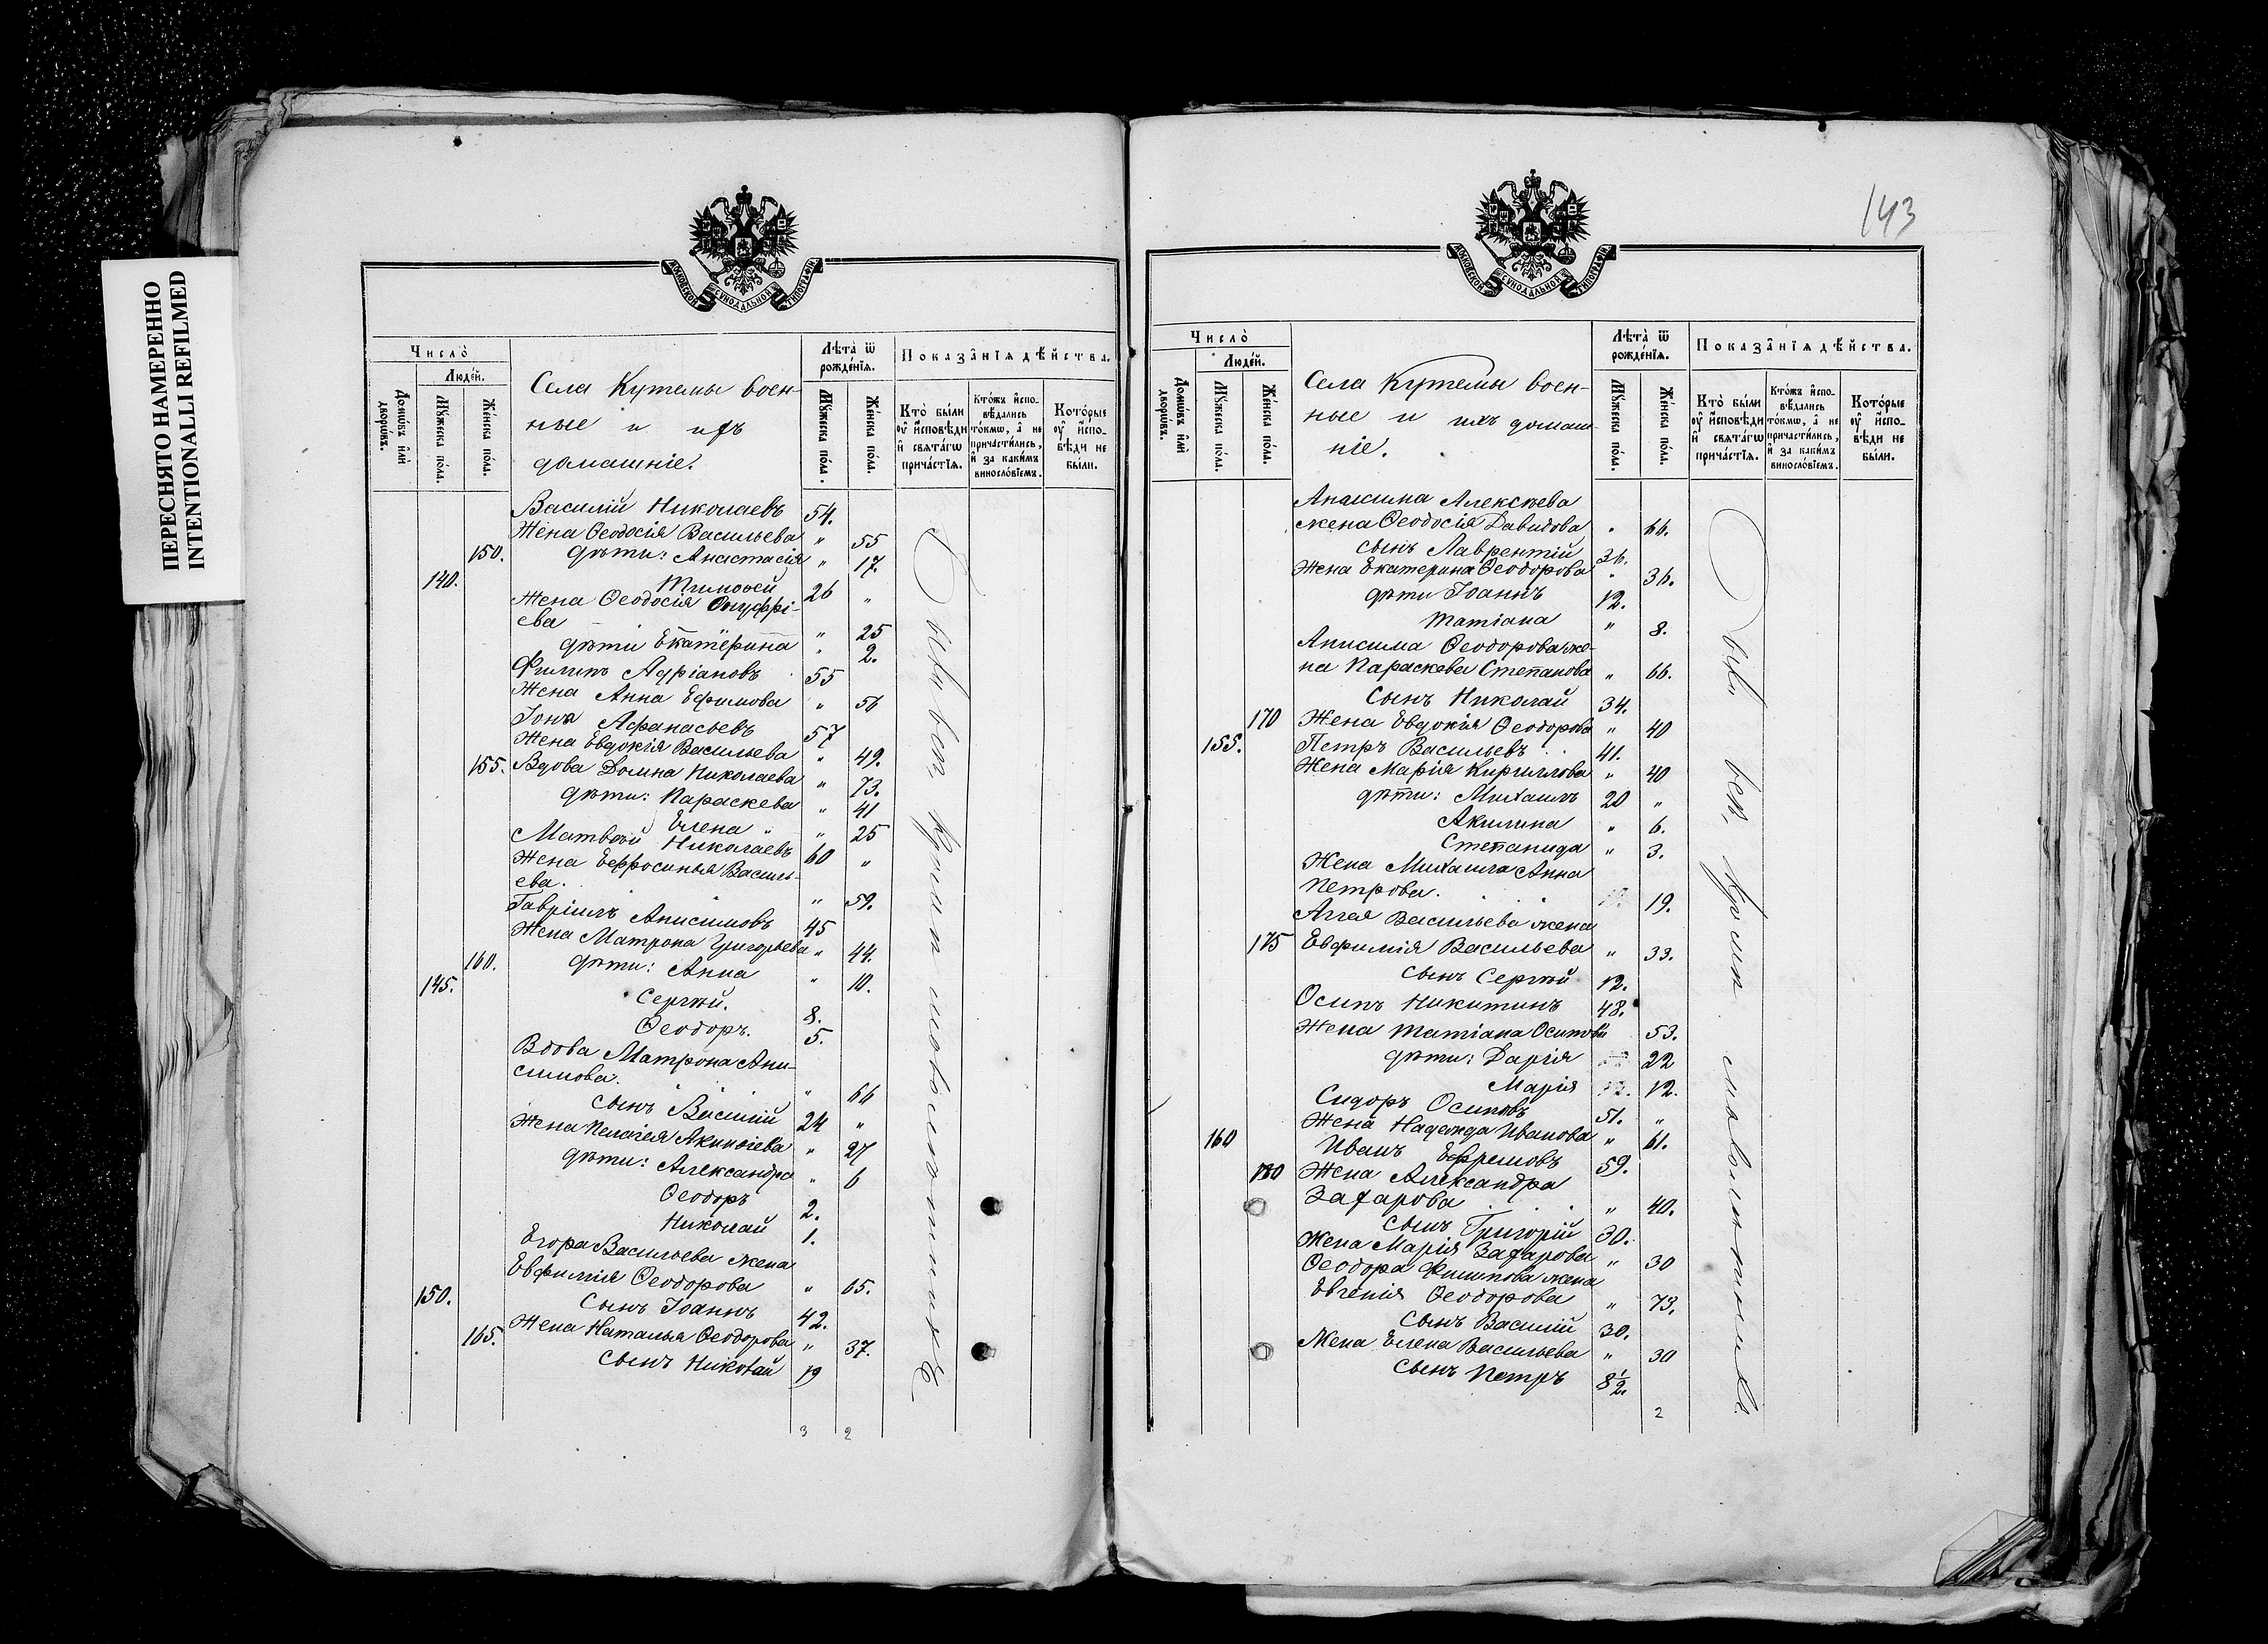 ПЕРЕСНЯТО НАМЕРЕННО
INTENTIONALLI REFILMED
МОСКОВСКОЙ СУНОДАЛЬНОЙ ТИПОГРАФІИ
Число̀
Людéй.
Домѡ́въ и҆лѝ дворѡ́въ.
Мꙋ́жеска по́ла.
Же́нска по́ла.
Села Кутемы воен-
ные и ихъ
домашніе.
Лѣта̀ ѿ рождéнїѧ.
Мꙋ́жеска по́ла.
Же́нска по́ла.
Показа̑нїѧ дѣ́йства.
Кто̀ бы́ли ᲂу҆ и҆сповѣ́ди и҆ свѧта́гѡ прича́стїѧ.
Кто́жъ и҆спо-вѣ́дались то́кмѡ, а҆ не причасти́лись, и҆ за каки́мъ винослóвїемъ.
Кото́рые ᲂу҆ и҆спо-вѣ́ди не бы́ли.
Василій Николаевъ 54.
Жена Ѳеодосія Васильева " 55
150. дѣти: Анастасія " 17.
140. Тимоѳей 26 "
Жена Ѳеодосія Онуфрі-
ева " 25
дѣти Екатерина " 2.
Филипъ Адріановъ 55
Жена Анна Ефимова " 56
Іона Афанасьевъ 57
Жена Евдокія Васильева " 49.
155. Вдова Домна Николаева " 73.
дѣти: Параскева " 41
Елена " " 25
Матвѣй Николаевъ 60 "
Жена Ефросинья Василь-
ева. " 59.
Гавріилъ Анисимовъ 45
Жена Матрона Григорьева " 44.
160. дѣти: Анна " 10.
145. Сергѣй. 8.
Ѳеодоръ. 5.
Вдова Матрона Ани-
симова. " 66
сынъ Василій 24 "
Жена Пелагея Акинѳіева " 27
дѣти: Александра " 6
Ѳеодоръ 2.
Николай 1.
Егора Васильева жена
Евфимія Ѳеодорова " 65.
150. Сынъ Іоаннъ 42.
165. Жена Наталья Ѳеодорова " 37.
сынъ Николай 19
3 2
143
МОСКОВСКОЙ СУНОДАЛЬНОЙ ТИПОГРАФІИ
Число̀
Людéй.
Домѡ́въ и҆лѝ дворѡ́въ.
Мꙋ́жеска по́ла.
Же́нска по́ла.
Села Кутемы воен-
ные и ихъ домаш-
ніе.
Лѣта̀ ѿ рождéнїѧ.
Мꙋ́жеска по́ла.
Же́нска по́ла.
Показа̑нїѧ дѣ́йства.
Кто̀ бы́ли ᲂу҆ и҆сповѣ́ди и҆ свѧта́гѡ прича́стїѧ.
Кто́жъ и҆спо-вѣ́дались то́кмѡ, а҆ не причасти́лись, и҆ за каки́мъ винослóвїемъ.
Кото́рые ᲂу҆ и҆спо-вѣ́ди не бы́ли.
Анисима Алексѣева
жена Ѳеодосія Давидова " 66.
сынъ Лаврентій 36.
Жена Екатерина Ѳеодорова " 36.
дѣти Іоаннъ 12.
Татіана " 8.
Анисима Ѳеодорова же-
на Параскева Степанова " 66.
Сынъ Николай 34.
170 Жена Евдокія Ѳеодорова " 40
155. Петръ Васильевъ 41.
Жена Марія Кириллова " 40
дѣти: Михаилъ 20 "
Акилина " 6.
Степанида " 3.
Жена Михаила Анна
Петрова. 19.
Аггея Васильева жена
175 Евфимія Васильева " 33.
сынъ Сергѣй 12.
Осипъ Никитинъ 48.
Жена Татіана Осипова 53.
дѣти: Дарія 22
Марія 12.
Сидоръ Осиповъ 51. "
Жена Надежда Иванова " 61.
160 Иванъ Ефремовъ 59.
180 Жена Александра
Захарова " 40.
сынъ Григорій 30.
Жена Марія Захарова " 30
Ѳеодора Филипова жена
Евгенія Ѳеодорова " 73.
сынъ Василій 30.
Жена Елена Васильева " 30
сынъ Петръ 8½.
2